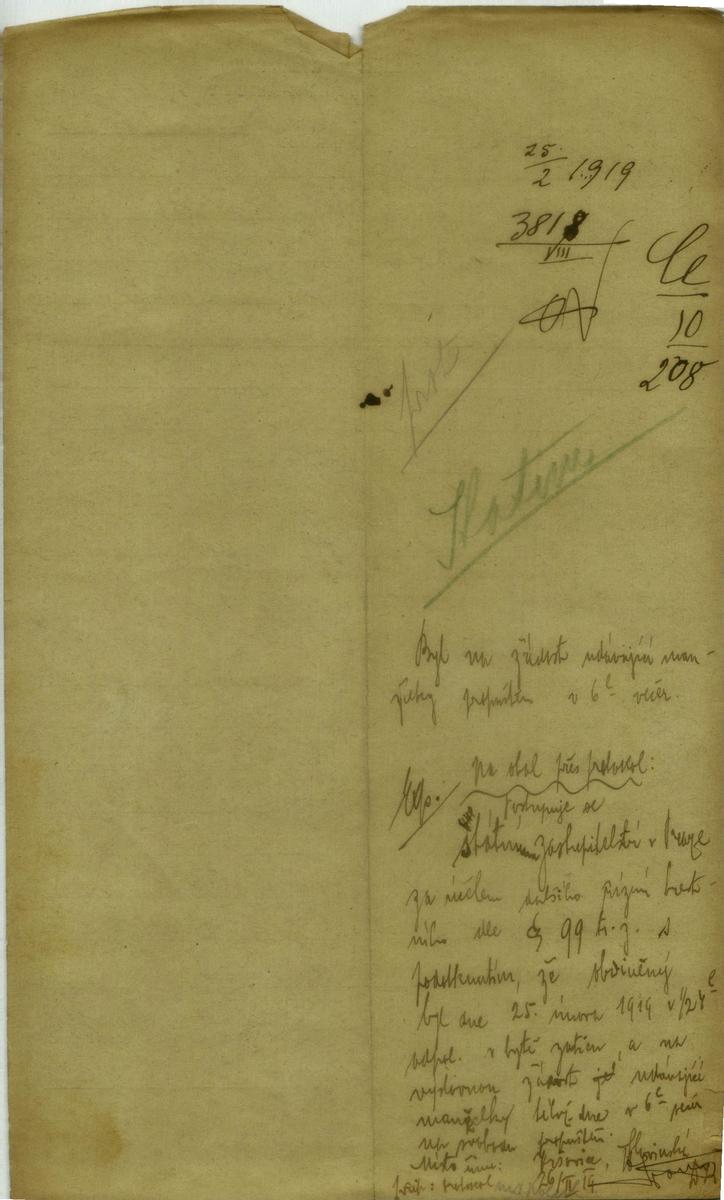 25./2 1919
3818
VIII
Če
10
208
Byl na žádost udávající man-
želky propuštěn v 6 h večer.
Exp. Na obal přes protokol:
Postupuje se
státnímu zastupitelství v Praze
za účelem dalšího řízení trest-
ního dle § 99 tr. z. s
podotknutím, že obviněný
byl dne 25. února 1919 v 1/2 7 h
odpol. v bytě zatčen, a na
výslovnou žádost udávající
manželky téhož dne v 6 h večer
na svobodu propuštěn.